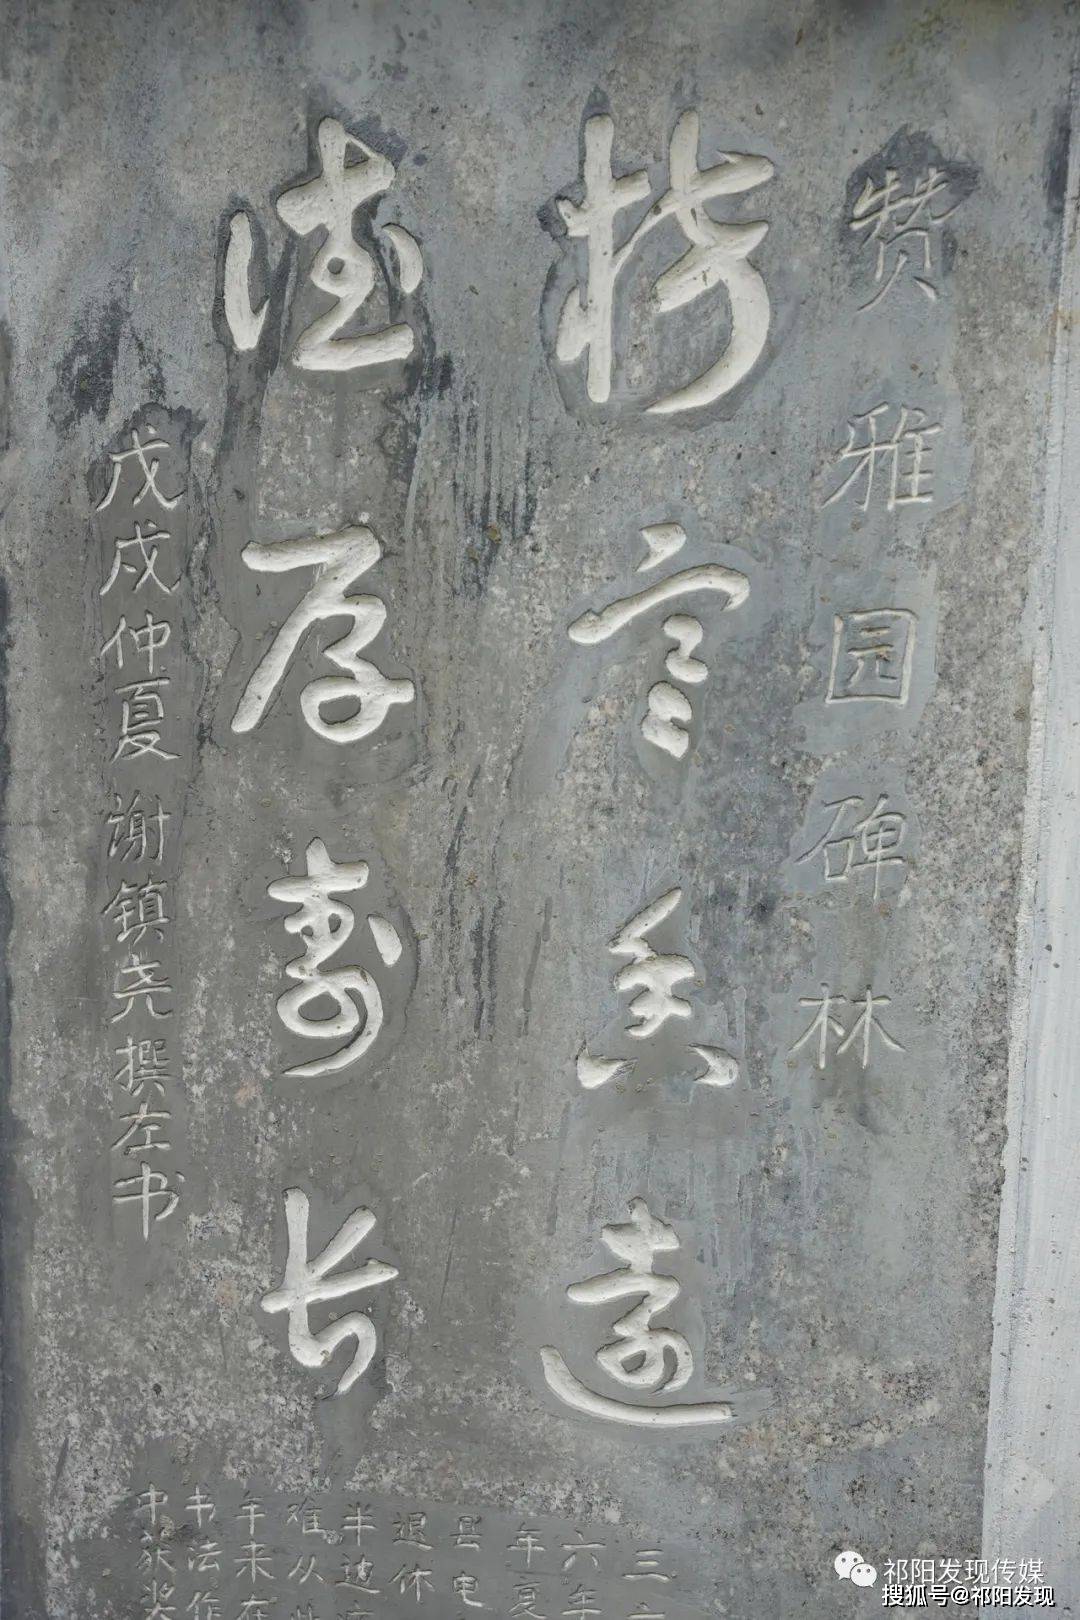 赞雅园碑林
梅寒香遠
德厚寿长
戊戌仲夏 谢镇尧撰左书
三
六年
年夏
县电
退休
半边
难从
年来在
书法作
中获奖
祁阳发现传媒
搜狐号@祁阳发现